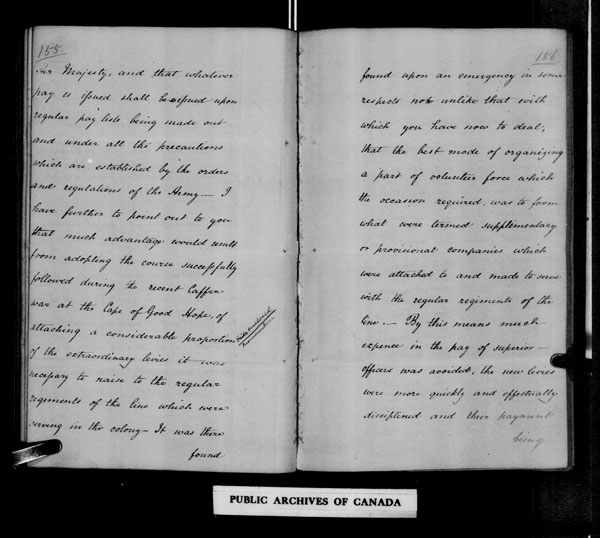 155.
Her Majesty, and that whatever
pay is issued shall be issued upon
regular pay lists being made out
and under all the precautions
which are established by the orders
and regulations of the Army — I
have further to point out to you
that much advantage would result
from adopting the course successfully
followed during the recent Caffre
war at the Cape of Good Hope, of
attaching a considerable proportion
of the extraordinary levies it was
necessary to raise to the regular
regiments of the line which were
serving in the colony — It was there
found
156
found upon an emergency in some
respects not unlike that with
which you have now to deal,
that the best mode of organizing
a part of volunteer force which
the occasion required, was to form
what were termed supplementary
or provisional companies which
were attached to and made to serve
with the regular regiments of the
line. — By this means much
expence in the pay of superior
officers was avoided, the new levies
were more quickly and effectually
disciplined and their payment
being
PUBLIC ARCHIVES OF CANADA